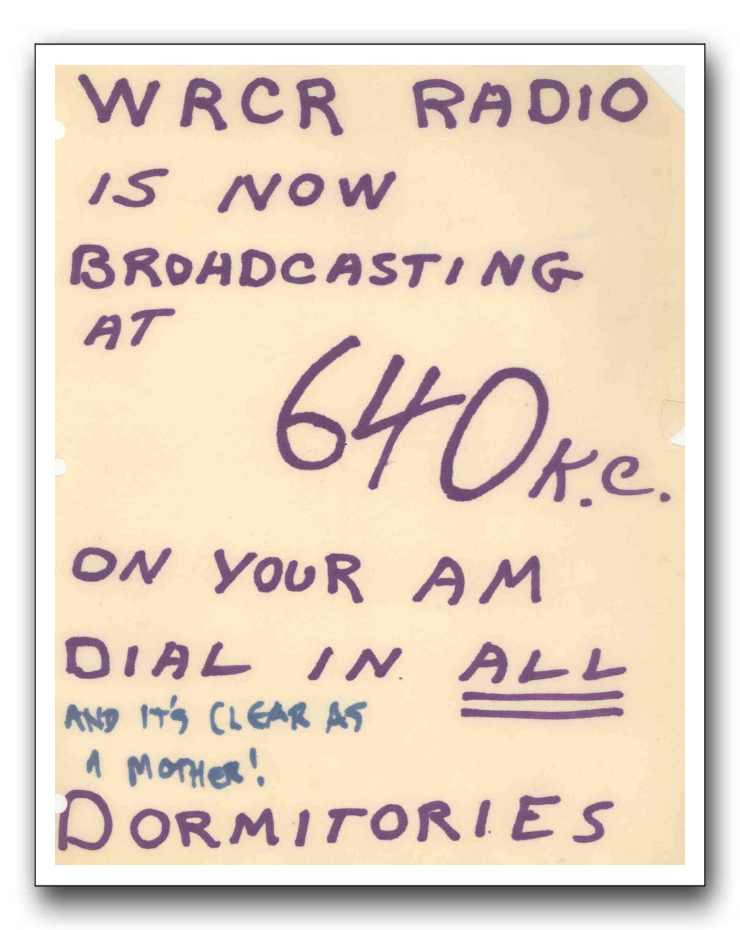 WRCR RADIO
IS NOW
BROADCASTING
AT
640 K.C.
ON YOUR AM
DIAL IN ALL
AND IT'S CLEAR AS
A MOTHER!
DORMITORIES